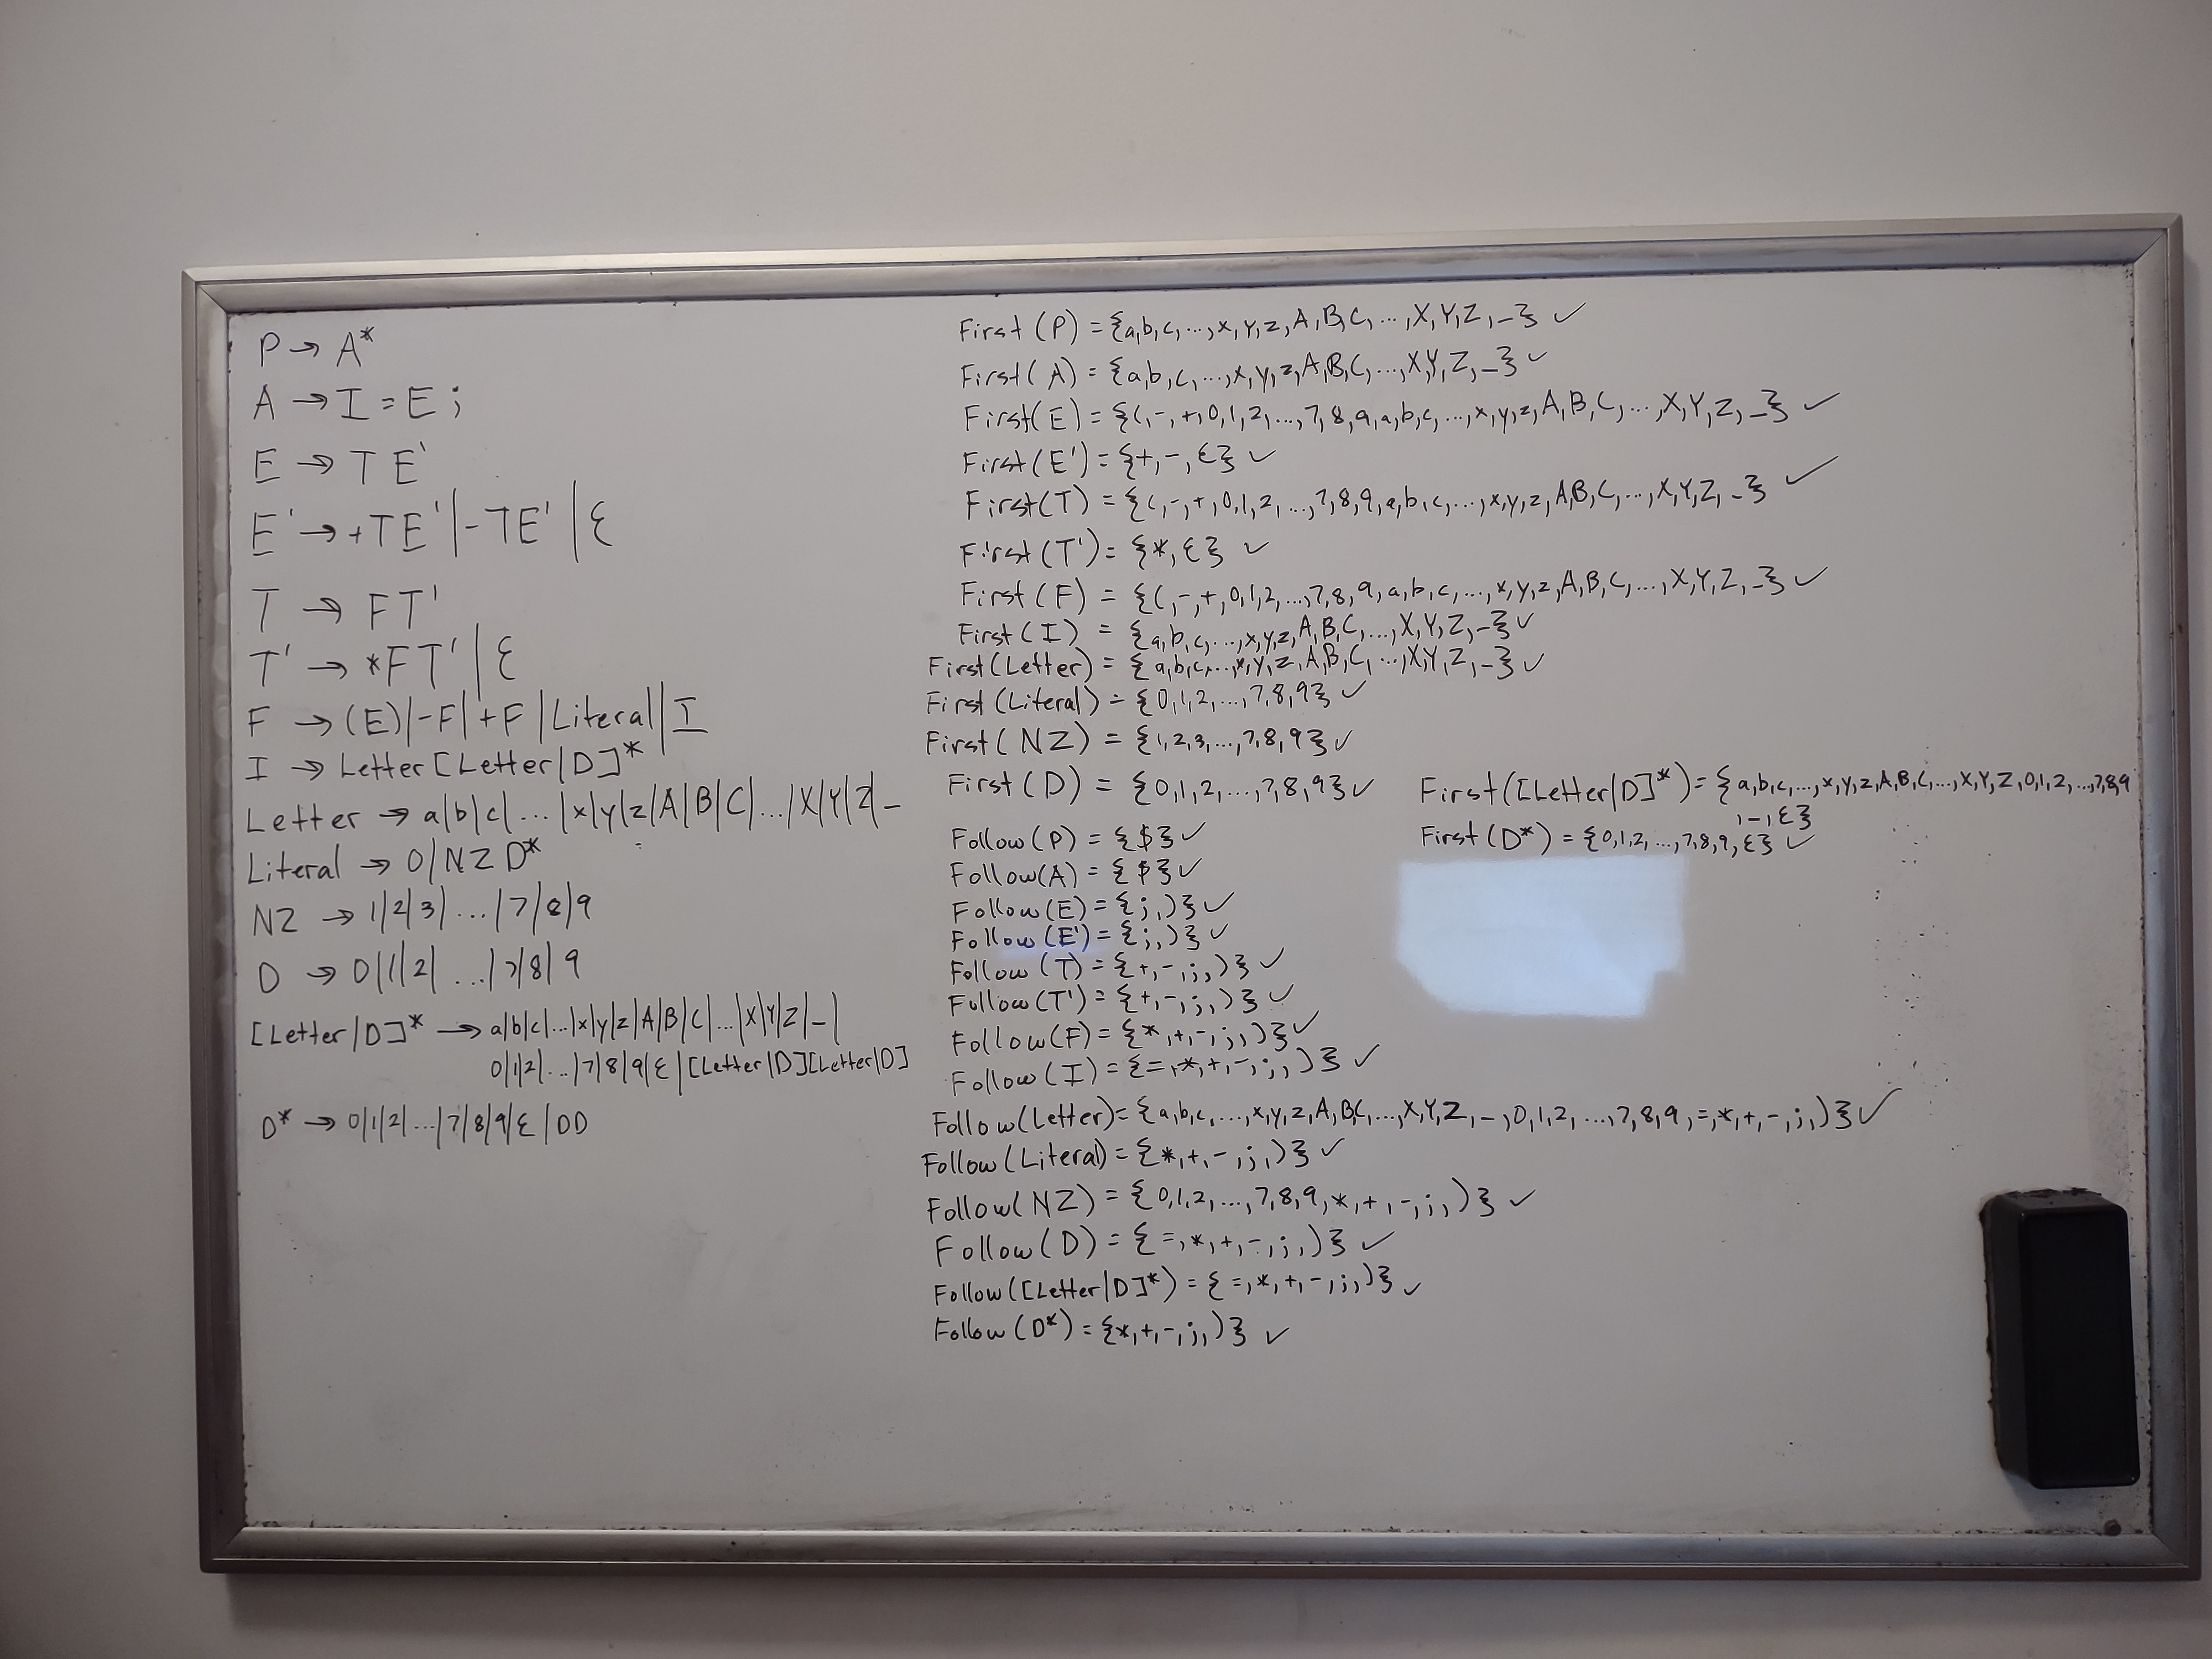 P → A*
A → I = E ;
E → T E'
E' → +TE' | -TE' | ε
T → FT'
T' → *FT' | ε
F → (E) | -F | +F | Literal | I
I → Letter [Letter|D]*
Letter → a|b|c|...|x|y|z|A|B|C|...|X|Y|Z|_
Literal → 0|NZ D*
NZ → 1|2|3|...|7|8|9
D → 0|1|2|...|7|8|9
[Letter|D]* → a|b|c|...|x|y|z|A|B|C|...|X|Y|Z|_|
0|1|2|...|7|8|9|ε|[Letter|D][Letter|D]
D* → 0|1|2|...|7|8|9|ε|DD
First(P) = {a,b,c,...,x,y,z,A,B,C,...,X,Y,Z,_} ✓
First(A) = {a,b,c,...,x,y,z,A,B,C,...,X,Y,Z,_} ✓
First(E) = {(,-,+,0,1,2,...,7,8,9,a,b,c,...,x,y,z,A,B,C,...,X,Y,Z,_} ✓
First(E') = {+,-,ε} ✓
First(T) = {(,-,+,0,1,2,...,7,8,9,a,b,c,...,x,y,z,A,B,C,...,X,Y,Z,_} ✓
First(T') = {*,ε} ✓
First(F) = {(,-,+,0,1,2,...,7,8,9,a,b,c,...,x,y,z,A,B,C,...,X,Y,Z,_} ✓
First(I) = {a,b,c,...,x,y,z,A,B,C,...,X,Y,Z,_} ✓
First(Letter) = {a,b,c,...,x,y,z,A,B,C,...,X,Y,Z,_} ✓
First(Literal) = {0,1,2,...,7,8,9} ✓
First(NZ) = {1,2,3,...,7,8,9} ✓
First(D) = {0,1,2,...,7,8,9} ✓
First([Letter|D]*) = {a,b,c,...,x,y,z,A,B,C,...,X,Y,Z,0,1,2,...,7,8,9
,_,ε}
First(D*) = {0,1,2,...,7,8,9,ε} ✓
Follow(P) = {$} ✓
Follow(A) = {$} ✓
Follow(E) = {;,)} ✓
Follow(E') = {;,)} ✓
Follow(T) = {+,-,;,)} ✓
Follow(T') = {+,-,;,)} ✓
Follow(F) = {*,+,-,;,)} ✓
Follow(I) = {=,*,+,-,;,)} ✓
Follow(Letter) = {a,b,c,...,x,y,z,A,B,C,...,X,Y,Z,_,0,1,2,...,7,8,9,=,*,+,-,;,)} ✓
Follow(Literal) = {*,+,-,;,)} ✓
Follow(NZ) = {0,1,2,...,7,8,9,*,+,-,;,)} ✓
Follow(D) = {=,*,+,-,;,)} ✓
Follow([Letter|D]*) = {=,*,+,-,;,)} ✓
Follow(D*) = {*,+,-,;,)} ✓